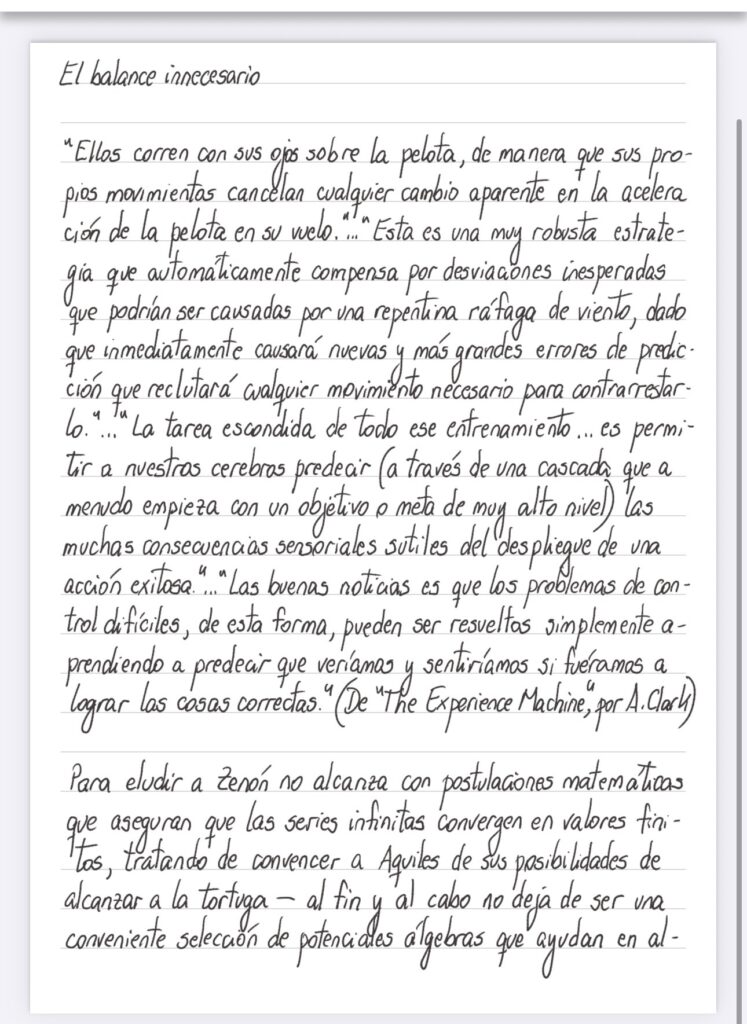 El balance innecesario
"Ellos corren con sus ojos sobre la pelota, de manera que sus pro-
pios movimientos cancelan cualquier cambio aparente en la acelera
ción de la pelota en su vuelo."..."Esta es una muy robusta estrate-
gía que automáticamente compensa por desviaciones inesperadas
que podrían ser causadas por una repentina ráfaga de viento, dado
que inmediatamente causará nuevas y más grandes errores de predic-
ción que reclutará cualquier movimiento necesario para contrarrestar-
lo."..."La tarea escondida de todo ese entrenamiento... es permi-
tir a nuestros cerebros predecir (a través de una cascada que a
menudo empieza con un objetivo o meta de muy alto nivel) las
muchas consecuencias sensoriales sutiles del despliegue de una
acción exitosa."..."Las buenas noticias es que los problemas de con-
trol difíciles, de esta forma, pueden ser resueltos simplemente a-
prendiendo a predecir que veríamos y sentiríamos si fuéramos a
lograr las cosas correctas." (De "The Experience Machine", por A. Clark)
Para eludir a Zenón no alcanza con postulaciones matemáticas
que aseguran que las series infinitas convergen en valores fini-
tos, tratando de convencer a Aquiles de sus posibilidades de
alcanzar a la tortuga — al fin y al cabo no deja de ser una
conveniente selección de potenciales álgebras que ayudan en al-